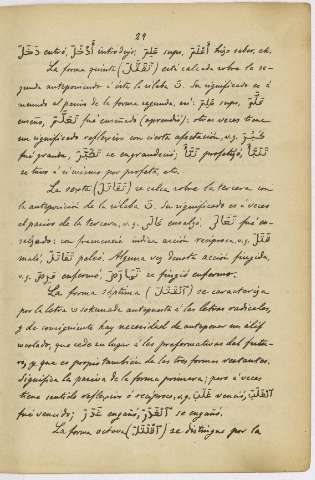 29
دَخَلَ entró, أَدْخَلَ introdujo; عَلِمَ supo, أَعْلَمَ hizo saber, etc.
La forma quinta (تَفَعَّلَ) está calcada sobre la se-
gunda anteponiendo á ésta la sílaba تَ. Su significado es á
menudo el pasivo de la forma segunda, así: عَلِمَ supo, عَلَّمَ
enseñó, تَعَلَّمَ fué enseñado (aprendió); otras veces tiene
un significado reflexivo con cierta afectación, v.g.
fué grande, تَكَبَّرَ se engrandeció; تَنَبَّأَ profetizó,
se tuvo á sí mismo por profeta, etc.
La sexta (تَفَاعَلَ) se calca sobre la tercera con
la anteposición de la sílaba تَ. Su significado es á veces
el pasivo de la tercera, v.g. عَالَى ensalzó, تَعَالَى fué en-
salzado: con frecuencia indica acción recíproca, v.g. قَتَلَ
mató, تَقَاتَلَ peleó. Alguna vez denota acción fingida,
v.g. مَرِضَ enfermó, تَمَارَضَ se fingió enfermo.
La forma séptima (اِنْفَعَلَ) se caracteriza
por la letra ن sokunada antepuesta á las letras radicales,
y de consiguiente hay necesidad de anteponer un alif
weslado, que cede su lugar á las preformativas del futu-
ro, y que es propio también de las tres formas restantes.
Significa la pasiva de la forma primera; pero á veces
tiene sentido reflexivo ó recíproco, v.g. غَلَبَ venció, اِنْغَلَبَ
fué vencido; غَدَرَ engañó, اِنْغَدَرَ se engañó.
La forma octava (اِفْتَعَلَ) se distingue por la